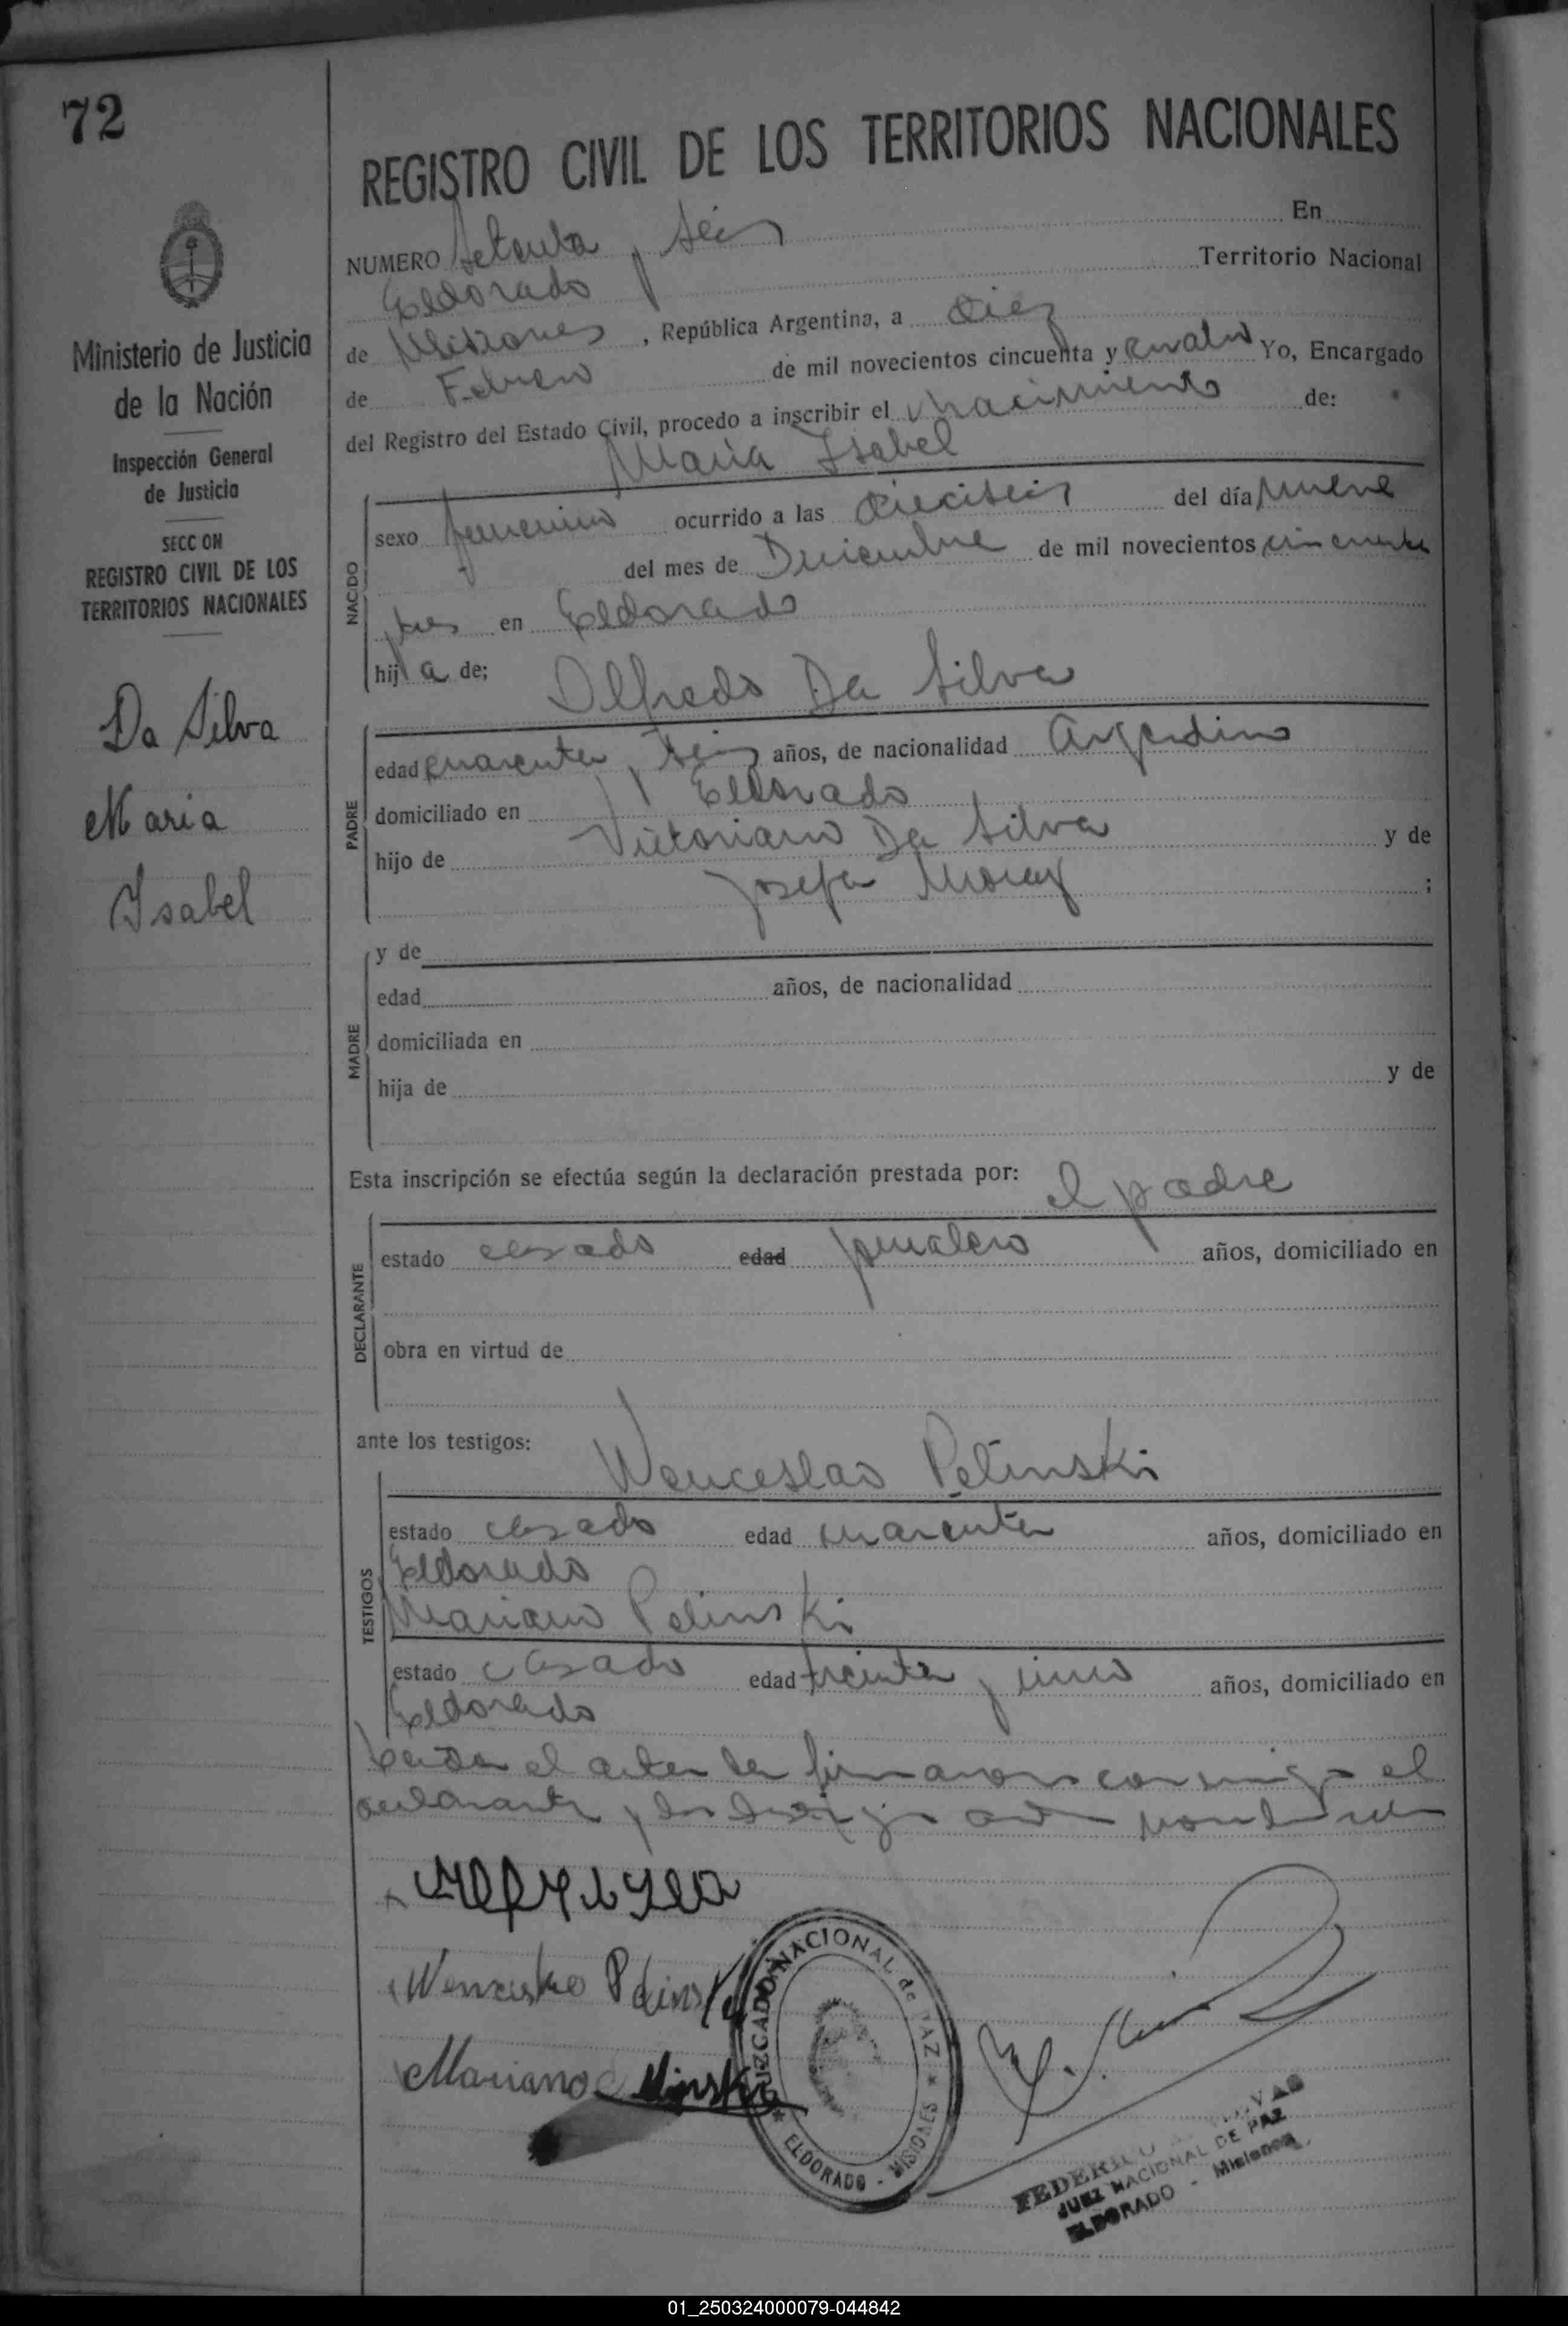 72
REGISTRO CIVIL DE LOS TERRITORIOS NACIONALES
NUMERO Setenta y seis En
Eldorado Territorio Nacional
de Misiones, República Argentina, a diez
de Febrero de mil novecientos cincuenta y cuatro Yo, Encargado
del Registro del Estado Civil, procedo a inscribir el nacimiento de:
Maria Isabel
NACIDO
sexo femenino ocurrido a las dieciseis del día nueve
del mes de Diciembre de mil novecientos cincuenta
tres en Eldorado
hija de; Alfredo Da Silva
PADRE
edad cuarenta y seis años, de nacionalidad Argentino
domiciliado en Eldorado
hijo de Victoriano Da Silva y de
Josefa ;
MADRE
y de
edad años, de nacionalidad
domiciliada en
hija de y de
Esta inscripción se efectúa según la declaración prestada por: el padre
DECLARANTE
estado casado edad jornalero años, domiciliado en
obra en virtud de
ante los testigos: Wenceslao Pelinski
TESTIGOS
estado casado edad cuarenta años, domiciliado en
Eldorado
Mariano Pelinski
estado casado edad treinta y años, domiciliado en
Eldorado
Leida el acta la firmaron conmigo el
declarante y los testigos
Mariano
Ministerio de Justicia
de la Nación
Inspección General
de Justicia
SECC ON
REGISTRO CIVIL DE LOS
TERRITORIOS NACIONALES
Da Silva
Maria
Isabel
JUZGADO NACIONAL de PAZ
ELDORADO - MISIONES
JUEZ NACIONAL DE PAZ
ELDORADO - Misiones
01_250324000079-044842